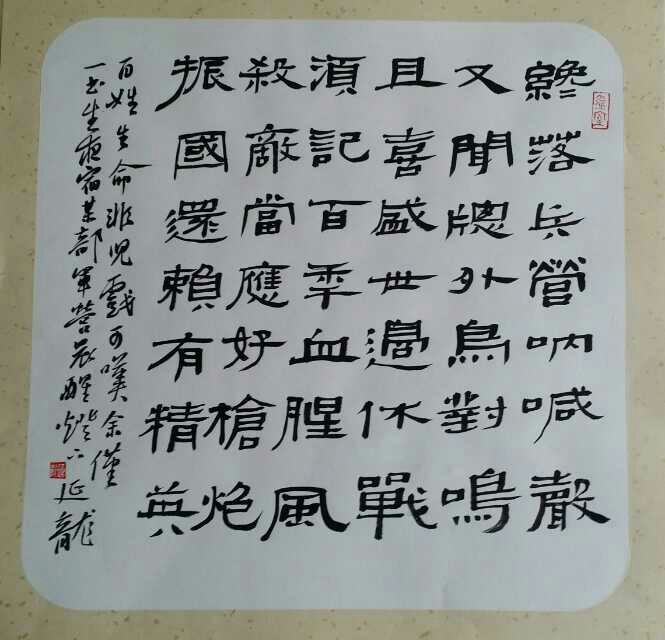 纔落兵營吶喊聲
又聞牕外鳥對鳴
且喜盛世邊休戰
湏記百秊血腥風
殺敵當應好槍炮
振國還賴有精英
百姓生命非兒戲可嘆余僅
一書生夜宿某部軍營晨醒燈下延龍